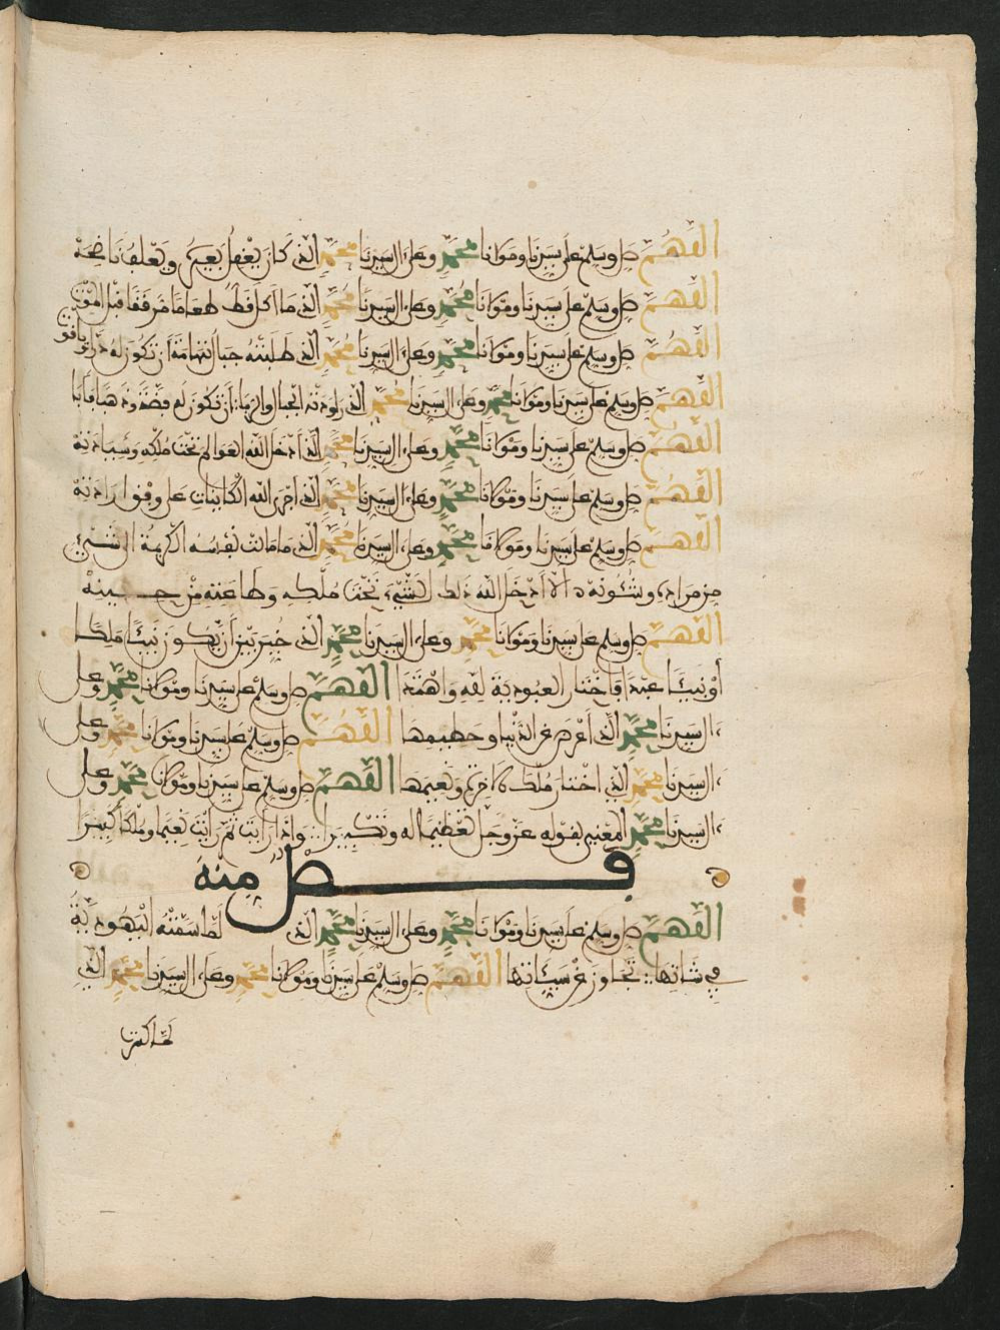 اللهم صل وسلم على سيدنا ومولانا محمد وعلى ءال سيدنا محمد الذي كان يعقل بعيره ويعلف ناضحه
اللهم صل وسلم على سيدنا ومولانا محمد وعلى ءال سيدنا محمد الذي ما اكل قط طعاما مرققا قبل الموت
اللهم صل وسلم على سيدنا ومولانا محمد وعلى ءال سيدنا محمد الذي طلبته جبال تهامة ان تكون له
اللهم صل وسلم على سيدنا ومولانا محمد وعلى ءال سيدنا محمد الذي راودته الجبال والرمال ان تكون له فضة وذهبا فابا
اللهم صل وسلم على سيدنا ومولانا محمد وعلى ءال سيدنا محمد الذي ادخل الله العوالم تحت ملكه وسيادته
اللهم صل وسلم على سيدنا ومولانا محمد وعلى ءال سيدنا محمد الذي اجرى الله الكاينات على وفق ارادته
اللهم صل وسلم على سيدنا ومولانا محمد وعلى ءال سيدنا محمد الذي ما مالت نفسه الكريمة الى شيء
من مراده وشئونه الا ادخل الله ذلك الشيء تحت ملكه وطاعته من حينه
اللهم صل وسلم على سيدنا ومولانا محمد وعلى ءال سيدنا محمد الذي خير بين أن يكون نبيئا ملكا
أو نبيئا عبدا فاختار العبودية لله واهتدا اللهم صل وسلم على سيدنا ومولانا محمد وعلى
ءال سيدنا محمد الذي اعرض عن الدنيا وحطيمها اللهم صل وسلم على سيدنا ومولانا محمد وعلى
ءال سيدنا محمد الذي اختار ملك الاخرة ونعيمها اللهم صل وسلم على سيدنا ومولانا محمد وعلى
ءال سيدنا محمد المعني بقوله عز وجل تعظيما له وتكبيرا واذا رايت ثم رايت نعيما وملكا كبيرا
فصل منه
اللهم صل وسلم على سيدنا ومولانا محمد وعلى ءال سيدنا محمد الذي لما سمته اليهودية
في شاتها تجاوز عن سيئاتها اللهم صل وسلم على سيدنا ومولانا محمد وعلى ءال سيدنا محمد الذي